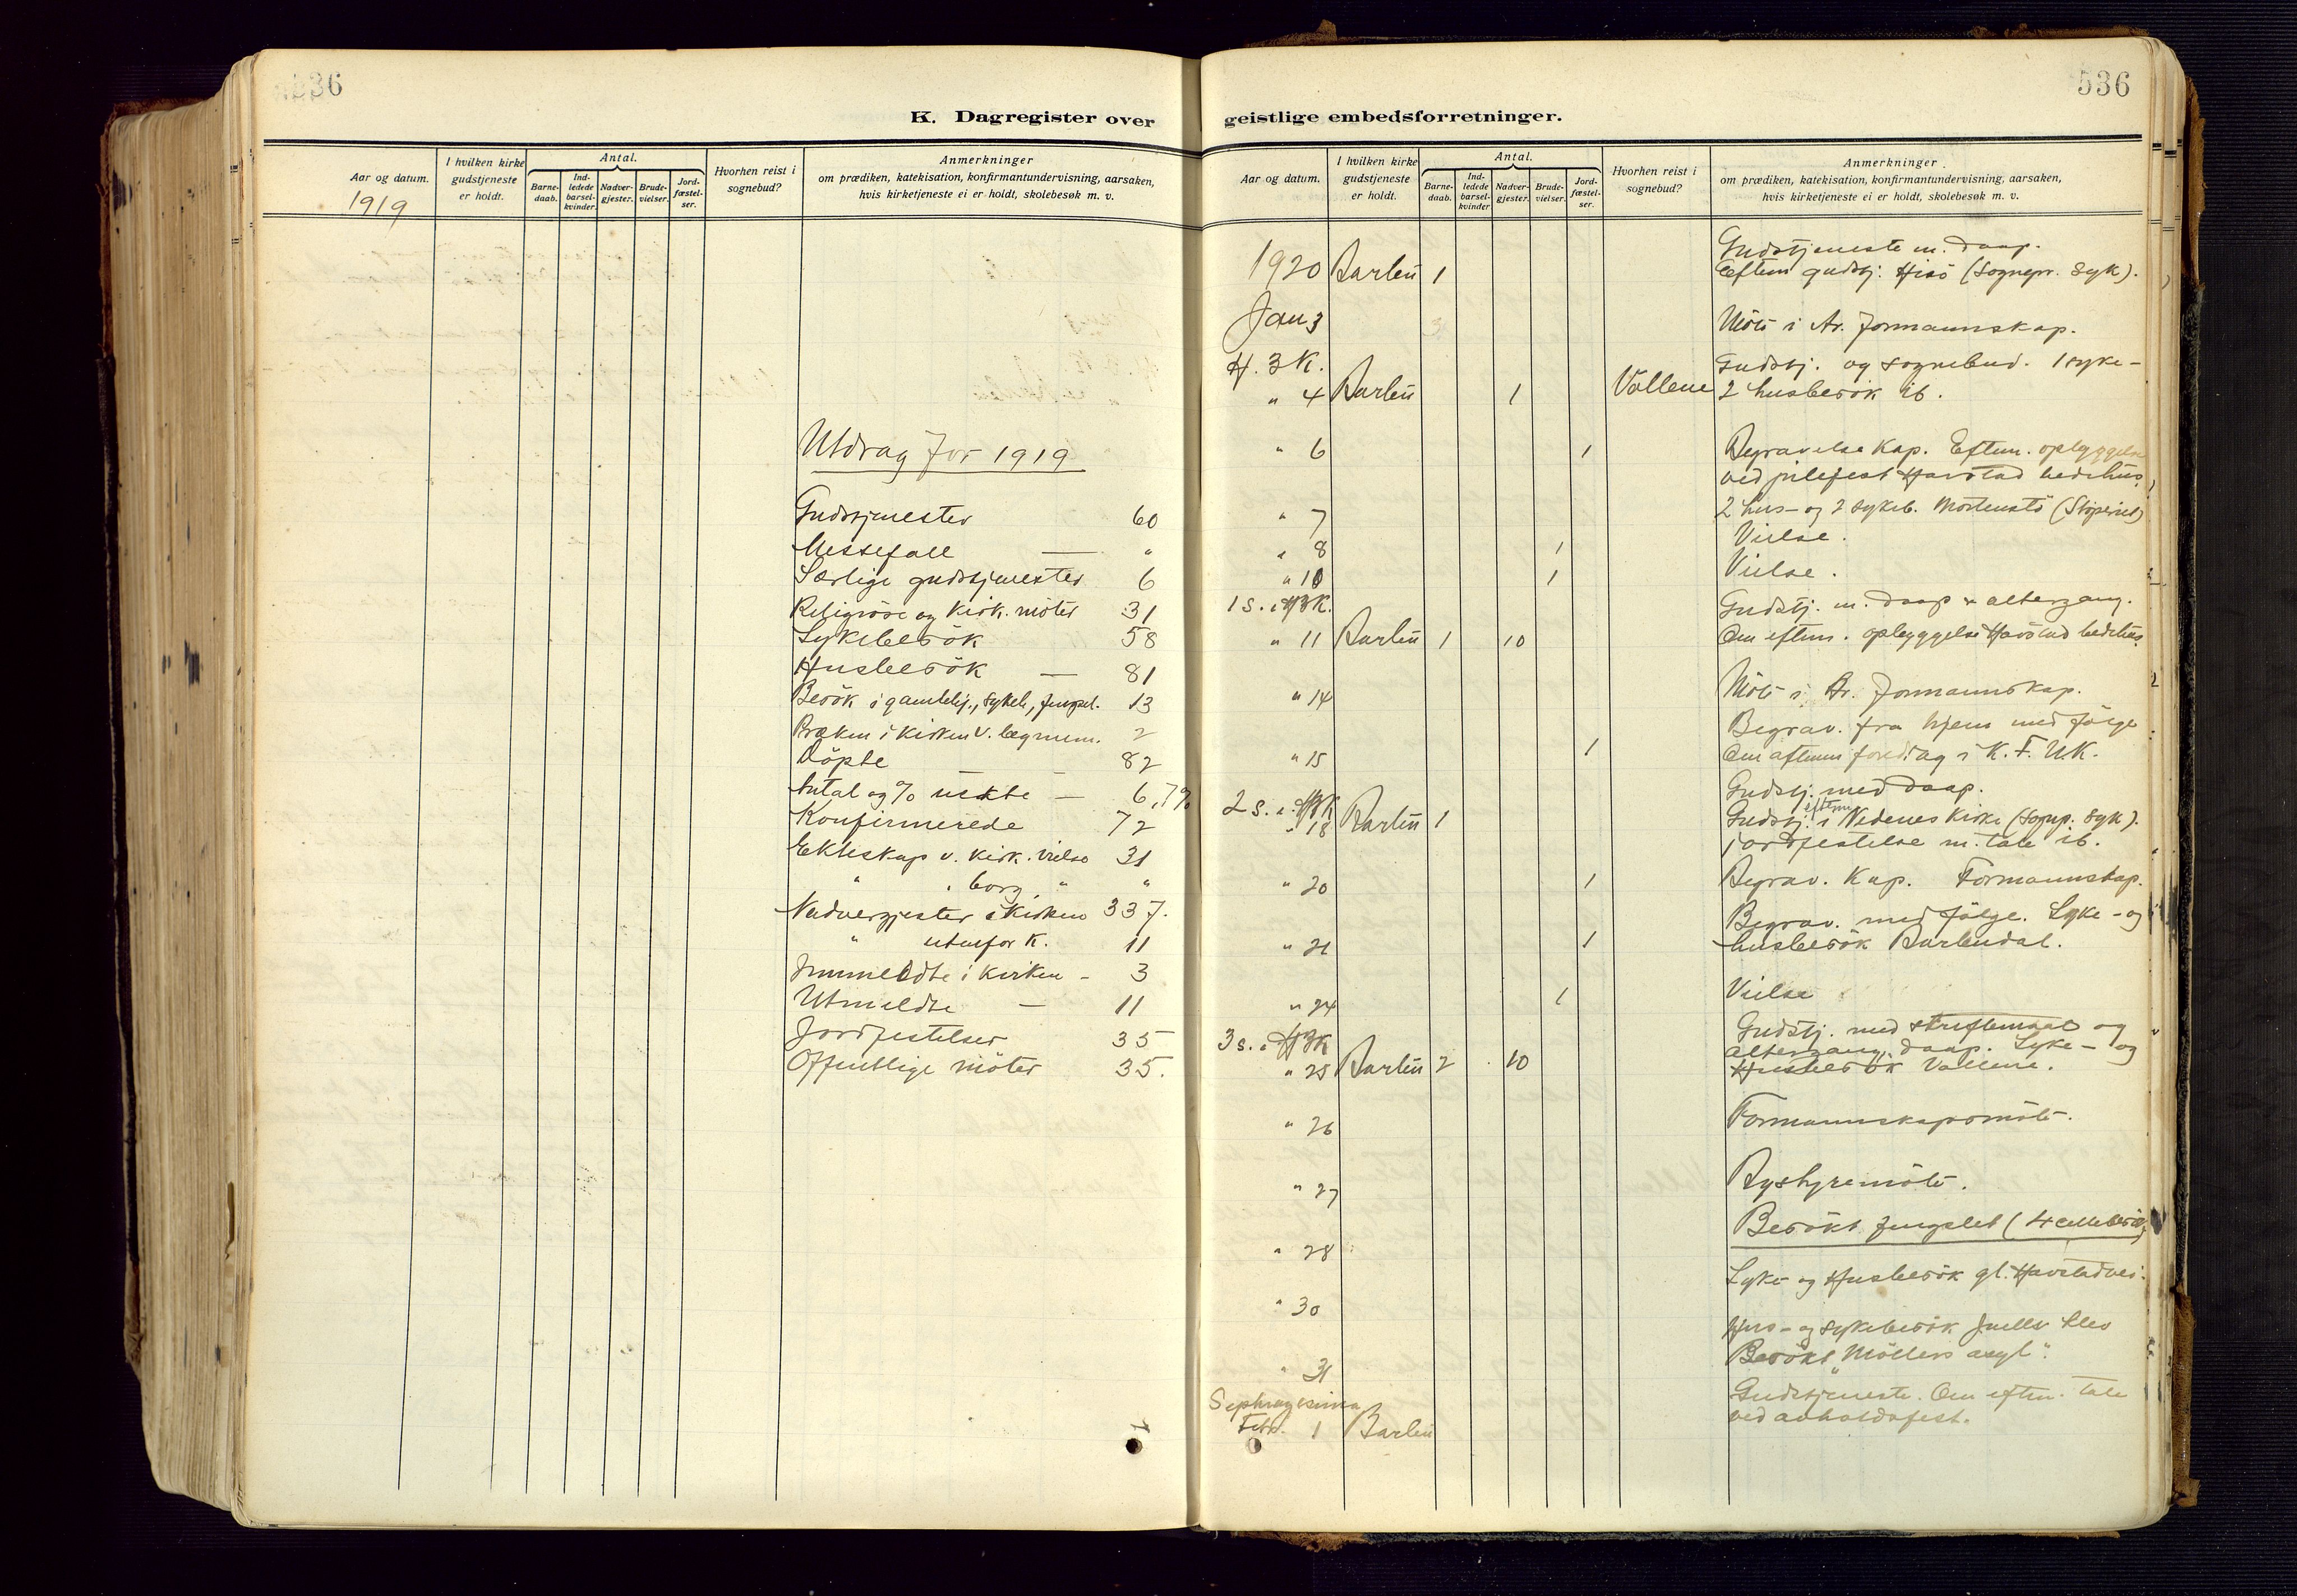 536
K. Dagregister over
Aar og datum.
I hvilken kirke gudstjeneste er holdt.
Antal.
Barne-daab.
Ind-ledede barsel-kvinder
Nadver-gjester.
Brude-vielser.
Jord-fæstel-ser.
Hvorhen reist i sognebud?
Anmerkninger
om prædiken, katekisation, konfirmantundervisning, aarsaken,
hvis kirketjeneste ei er holdt, skolebesøk m. v.
1919
Utdrag for 1919
Gudstjenester 60
Messefall — "
Særlige gudstjenester 6
Religiøse og kirk. möter 31
Sykebesök 58
Husbesök — 81
Besök i gamlehj., sykeh., fengsel. 13
Præken i kirken v. lægmenn. 2
Döpte 82
Antal og % uekte — 6,7%
Konfirmerede 72
Ekteskap v. kirk. vielse 31
" " borg. " "
Nadvergjester i kirken 337.
" utenfor K. 11
Innmeldte i kirken - 3
Utmeldte — 11
Jordfestelser 35
Offentlige möter 35.
536
geistlige embedsforretninger.
Aar og datum.
I hvilken kirke gudstjeneste er holdt.
Antal.
Barne-daab.
Ind-ledede barsel-kvinder
Nadver-gjester.
Brude-vielser.
Jord-fæstel-ser.
Hvorhen reist i sognebud?
Anmerkninger
om prædiken, katekisation, konfirmantundervisning, aarsaken,
hvis kirketjeneste ei er holdt, skolebesøk m. v.
Gudstjeneste m. daap.
1920 Barbu 1 Eftem gudstj. Hisö (Sognepr. syk).
Jan 3 Möte i Ar. formannskap.
H. 3 K. Gudstj. og sognebud. 1 syke-
" 4 Barbu 1 Vollene 2 husbesök ib.
" 6 1 Begravelse Kap. Eftem. opbyggelse
ved julefest Havstad bedehus.
" 7 2 hus- og 2 sykeb.
" 8 1 Vielse.
" 10 1 Vielse.
1 s. e. H3K. Gudstj. m. daap & altergang.
" 11 Barbu 1 10 Om eftm. opbyggelse Havstad bedehus.
" 14 Möte i Ar. formannskap.
Begrav. fra hjem med fölge
" 15 1 Om aftenen foredrag i K. F. U. K.
Gudstj. med daap.
2 s. e. H3K
" 18 Barbu 1 Gudstj. eftem i Nedenes kirke (Sognp. syk).
jordfestelse m. tale ib.
" 20 1 Begrav. Kap. Formannskap.
Begrav. med fölge. Syke- og
" 21 1 husbesök Barbudal.
" 24 1 Vielse
3 s. e. H3K Gudstj. med skriftemaal og
altergang, daap. Syke- og
" 25 Barbu 2 10 Husbesök Vollene.
" 26 Formannskapsmöte.
" 27 Bystyremöte.
" 28 Besökt fengslet (4 cellebesök)
" 30 Syke- og Husbesök gl. Havstadvei.
Hus- og sykebesök
" 31 Besökt "Möllers asyl".
Septuagesima Gudstjeneste. Om eftm. tale
Febr. 1 Barbu ved avholdsfest.